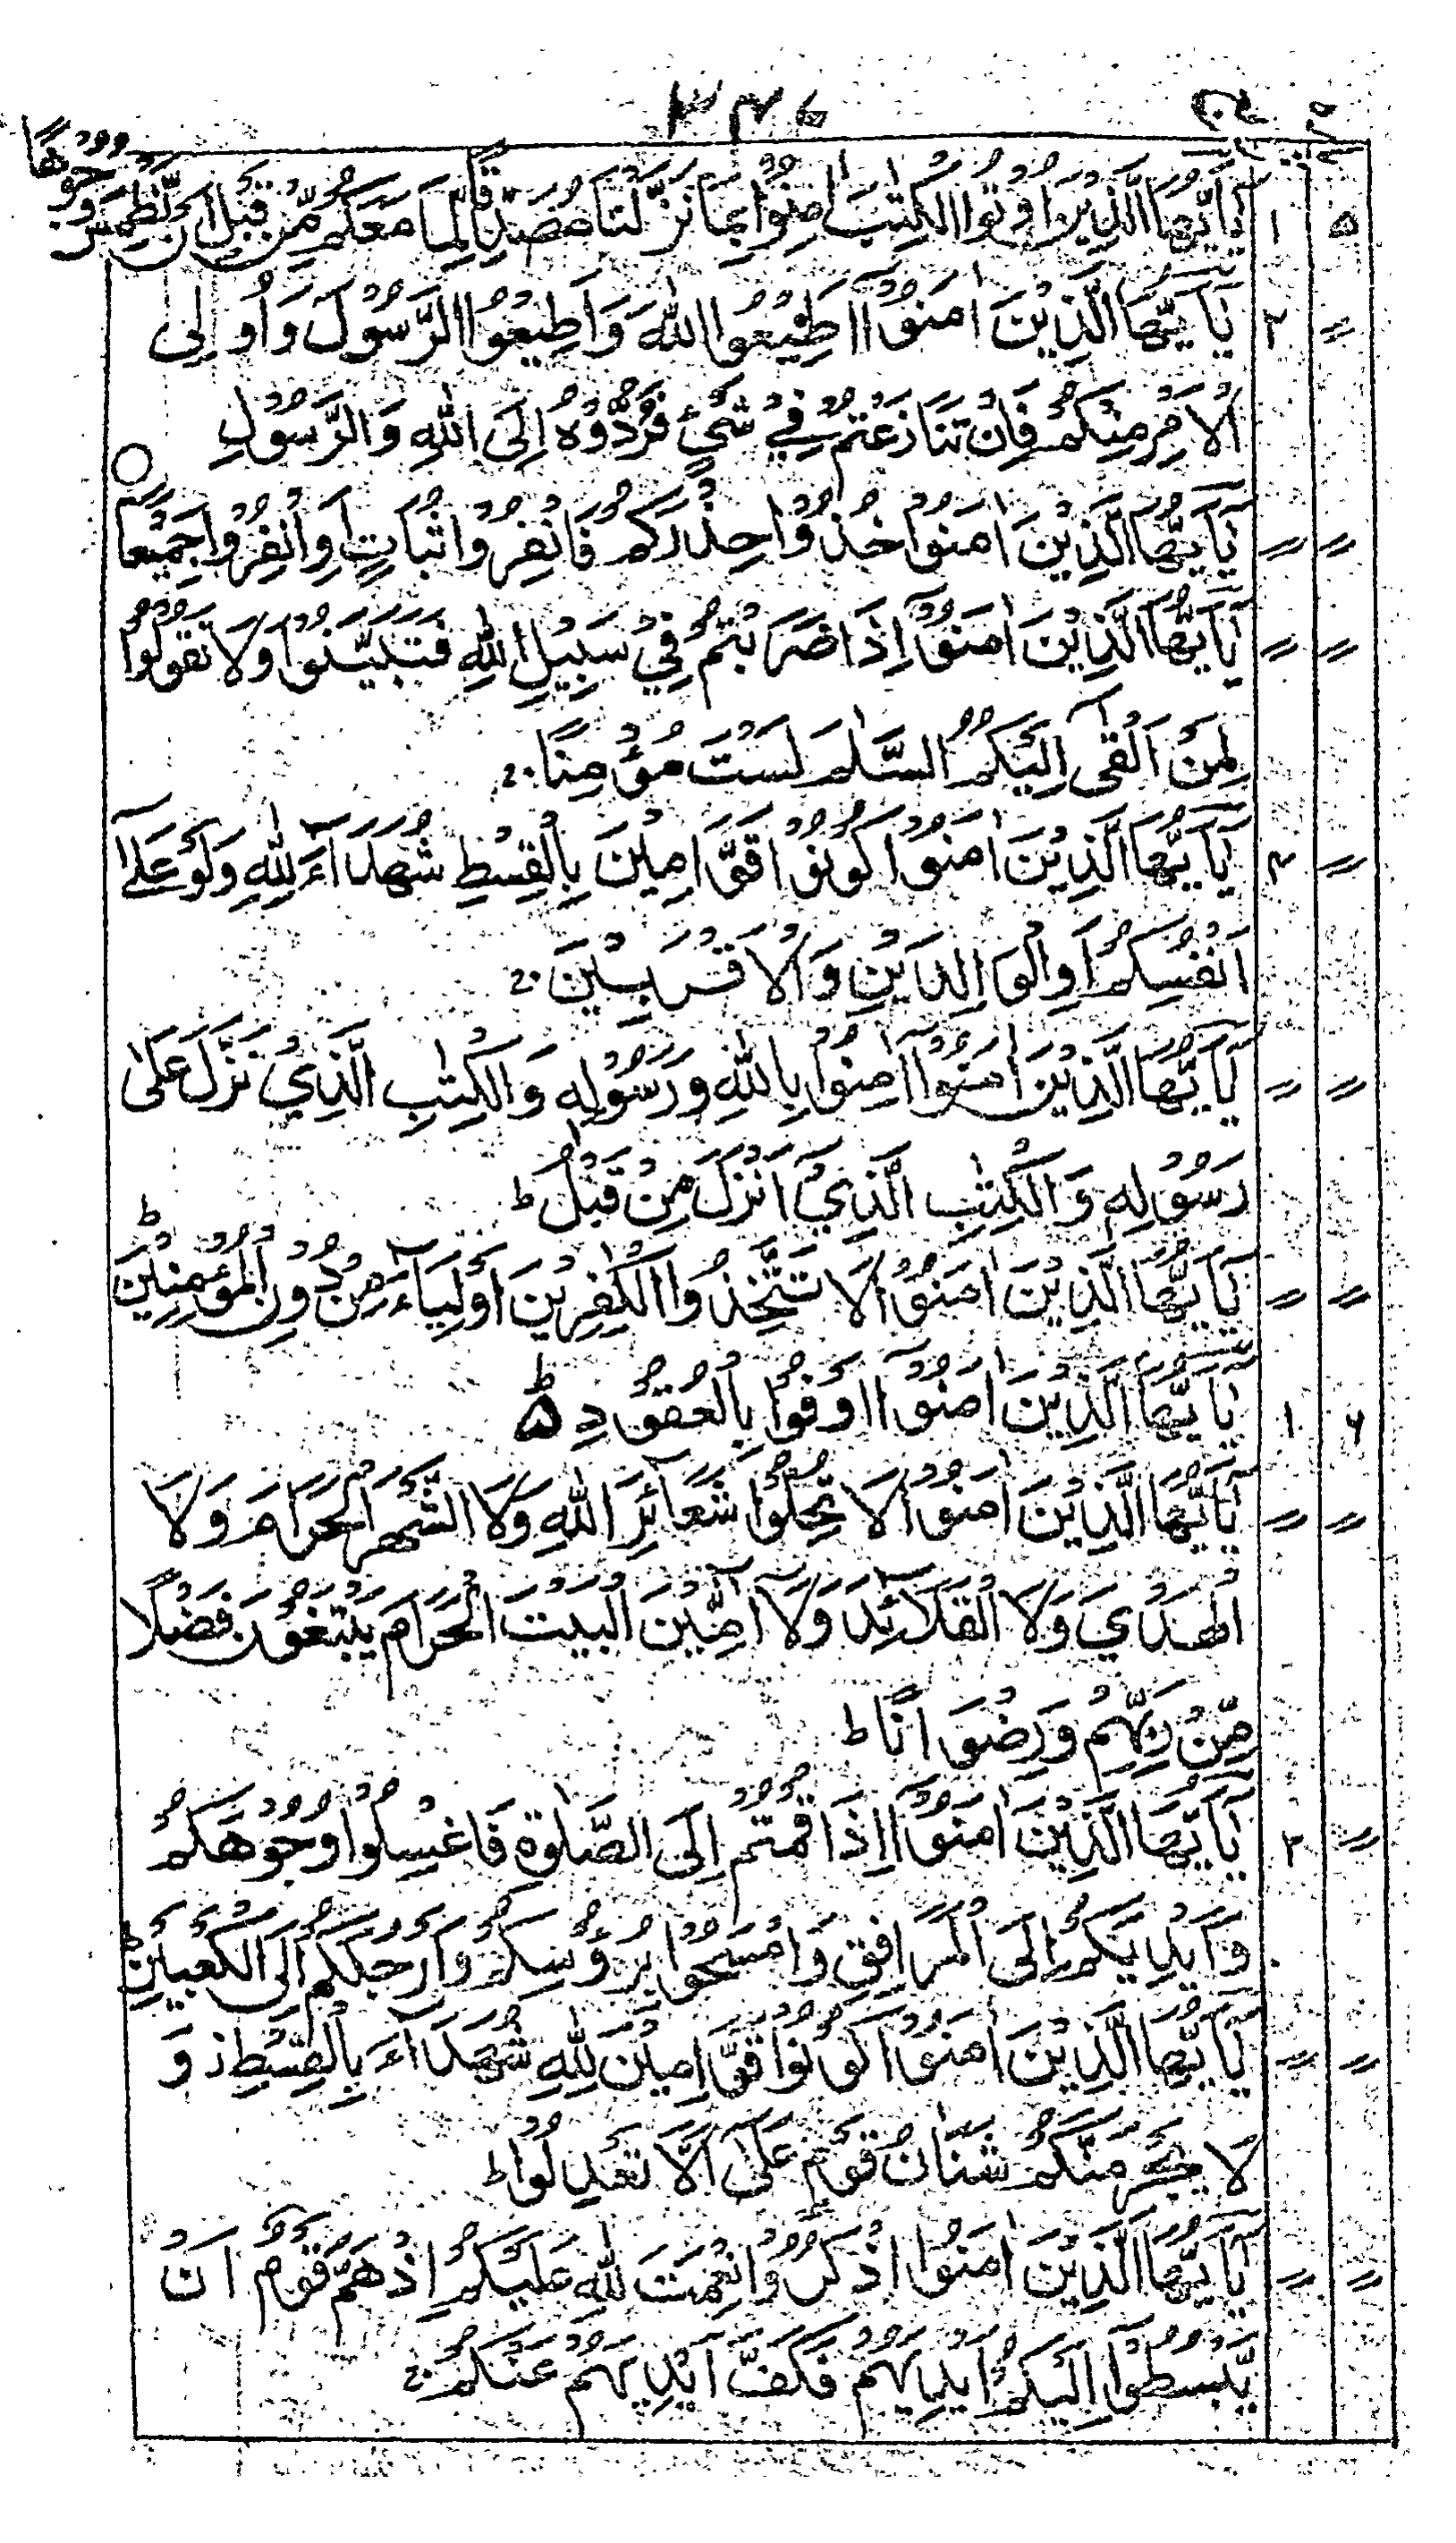 ۳۴۷
يٰۤاَيُّهَا الَّذِيْنَ اُوْتُوا الْكِتٰبَ اٰمِنُوْا بِمَا نَزَّلْنَا مُصَدِّقًا لِّمَا مَعَكُمْ مِّنْ قَبْلِ اَنْ نَّطْمِسَ وُجُوْهًا ۱ ۵
يٰۤاَيُّهَا الَّذِيْنَ اٰمَنُوْۤا اَطِيْعُوا اللهَ وَاَطِيْعُوا الرَّسُوْلَ وَاُولِى ۲ 〃
الْاَمْرِ مِنْكُمْ فَاِنْ تَنَازَعْتُمْ فِيْ شَيْءٍ فَرُدُّوْهُ اِلَى اللهِ وَالرَّسُوْلِ ○
يٰۤاَيُّهَا الَّذِيْنَ اٰمَنُوْا خُذُوْا حِذْرَكُمْ فَانْفِرُوْا ثُبَاتٍ اَوِ انْفِرُوْا جَمِيْعًا 〃 〃
يٰۤاَيُّهَا الَّذِيْنَ اٰمَنُوْۤا اِذَا ضَرَبْتُمْ فِيْ سَبِيْلِ اللهِ فَتَبَيَّنُوْا وَلَا تَقُوْلُوْا 〃 〃
لِمَنْ اَلْقٰۤى اِلَيْكُمُ السَّلٰمَ لَسْتَ مُؤْمِنًا ج
يٰۤاَيُّهَا الَّذِيْنَ اٰمَنُوْا كُوْنُوْا قَوَّامِيْنَ بِالْقِسْطِ شُهَدَآءَ لِلّٰهِ وَلَوْ عَلٰۤى ۳ 〃
اَنْفُسِكُمْ اَوِ الْوَالِدَيْنِ وَالْاَقْرَبِيْنَ ج
يٰۤاَيُّهَا الَّذِيْنَ اٰمَنُوْۤا اٰمِنُوْا بِاللهِ وَرَسُوْلِهٖ وَالْكِتٰبِ الَّذِيْ نَزَّلَ عَلٰى 〃 〃
رَسُوْلِهٖ وَالْكِتٰبِ الَّذِيْۤ اَنْزَلَ مِنْ قَبْلُ ط
يٰۤاَيُّهَا الَّذِيْنَ اٰمَنُوْا لَا تَتَّخِذُوا الْكٰفِرِيْنَ اَوْلِيَآءَ مِنْ دُوْنِ الْمُؤْمِنِيْنَ ط 〃 〃
يٰۤاَيُّهَا الَّذِيْنَ اٰمَنُوْۤا اَوْفُوْا بِالْعُقُوْدِ ط ۵ ۱ ۶
يٰۤاَيُّهَا الَّذِيْنَ اٰمَنُوْا لَا تُحِلُّوْا شَعَآئِرَ اللهِ وَلَا الشَّهْرَ الْحَرَامَ وَلَا 〃 〃
الْهَدْيَ وَلَا الْقَلَآئِدَ وَلَاۤ آمِّيْنَ الْبَيْتَ الْحَرَامَ يَبْتَغُوْنَ فَضْلًا
مِّنْ رَّبِّهِمْ وَرِضْوَانًا ط
يٰۤاَيُّهَا الَّذِيْنَ اٰمَنُوْۤا اِذَا قُمْتُمْ اِلَى الصَّلٰوةِ فَاغْسِلُوْا وُجُوْهَكُمْ ۲ 〃
وَاَيْدِيَكُمْ اِلَى الْمَرَافِقِ وَامْسَحُوْا بِرُءُوْسِكُمْ وَاَرْجُلَكُمْ اِلَى الْكَعْبَيْنِ ط
يٰۤاَيُّهَا الَّذِيْنَ اٰمَنُوْا كُوْنُوْا قَوَّامِيْنَ لِلّٰهِ شُهَدَآءَ بِالْقِسْطِ ز وَ 〃 〃
لَا يَجْرِمَنَّكُمْ شَنَاٰنُ قَوْمٍ عَلٰۤى اَلَّا تَعْدِلُوْا ط
يٰۤاَيُّهَا الَّذِيْنَ اٰمَنُوا اذْكُرُوْا نِعْمَتَ اللهِ عَلَيْكُمْ اِذْ هَمَّ قَوْمٌ اَنْ 〃 〃
يَّبْسُطُوْۤا اِلَيْكُمْ اَيْدِيَهُمْ فَكَفَّ اَيْدِيَهُمْ عَنْكُمْ ج